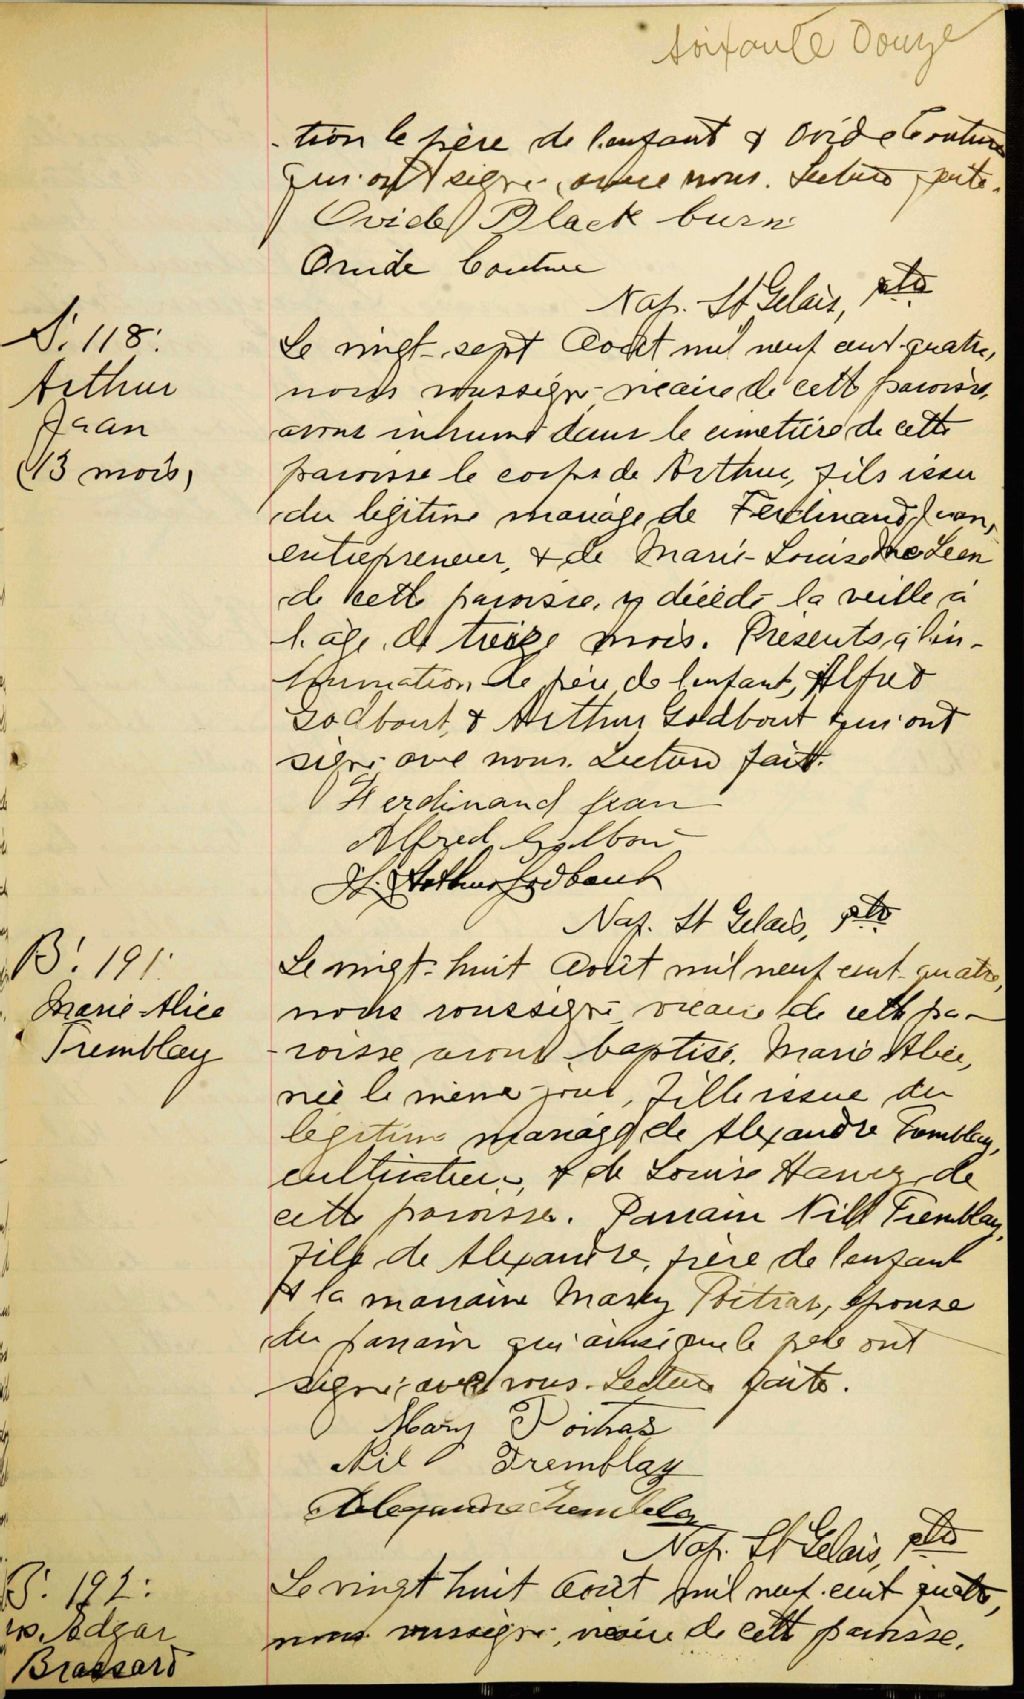 soixante douze
-tion le père de l'enfant & Ovide Couture
qui ont signé avec nous. Lecture faite.
Ovide Blackburn
Ovide Couture
Nap. St Gelais, ptre
S. 118:
Arthur
Jean
(13 mois)
Le vingt-sept Août mil neuf cent-quatre,
nous soussigné, vicaire de cette paroisse,
avons inhumé dans le cimetière de cette
paroisse le corps de Arthur, fils issu
du légitime mariage de Ferdinand Jean,
entrepreneur, & de Marie-Louise McLean
de cette paroisse, y décédé la veille à
l'âge de treize mois. Présents à l'in-
humation le père de l'enfant, Alfred
Godbout, & Arthur Godbout qui ont
signé avec nous. Lecture faite.
Ferdinand Jean
Alfred Godbout
Arthur Godbout
Nap. St Gelais, ptre
B. 191:
Marie-Alice
Tremblay
Le vingt-huit Août mil neuf cent-quatre,
nous soussigné vicaire de cette pa-
-roisse avons baptisé Marie Alice,
née le même jour, fille issue du
légitime mariage de Alexandre Tremblay,
cultivateur, & de Louise Harvey de
cette paroisse. Parrain Nil Tremblay,
fils de Alexandre, père de l'enfant
& la marraine Mary Poitras, épouse
du parrain qui ainsi que le père ont
signé avec nous. Lecture faite.
Mary Poitras
Nil Tremblay
Alexandre Tremblay
Nap. St Gelais, ptre
B. 192:
Edgar
Brassard
Le vingt huit Août mil neuf cent quatre,
nous soussigné, vicaire de cette paroisse,